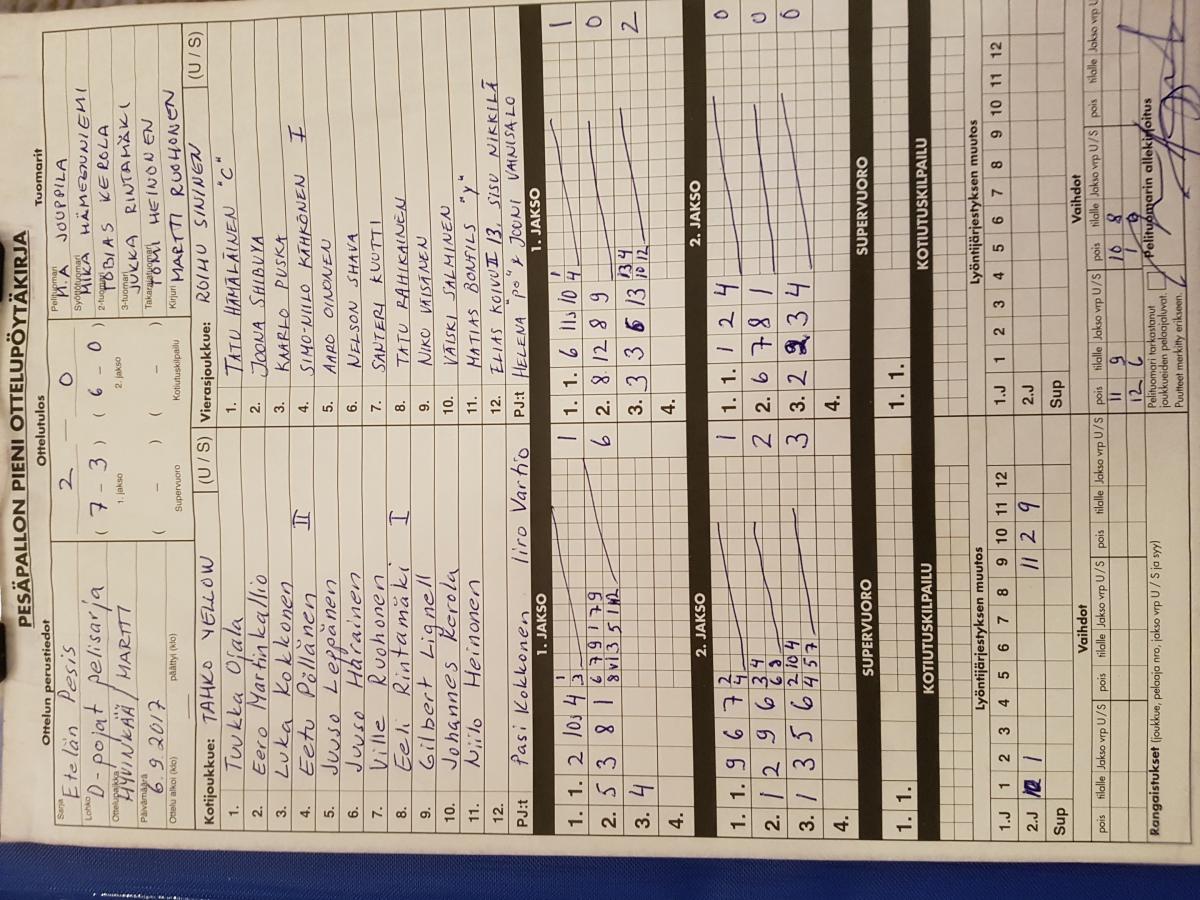 PESÄPALLON PIENI OTTELUPÖYTÄKIRJA
Ottelun perustiedot
Sarja
Etelän Pesis
Lohko
D-pojat pelisarja
Ottelupaikka
HYVINKÄÄ / MARTTI
Päivämäärä
6.9.2017
Ottelu alkoi (klo) päättyi (klo)
Ottelutulos
2 0
( 7 - 3 ) ( 6 - 0 )
1. jakso 2. jakso
( - ) ( - )
Supervuoro Kotiutuskilpailu
Tuomarit
Pelituomari
JOUPPILA
Syöttötuomari
MIKA HÄMEENNIEMI
2-tuomari
TOBIAS KEROLA
3-tuomari
JUKKA RINTAMÄKI
Takarajatuomari
TOMI HEINONEN
Kirjuri
MARTTI RUOHONEN
Kotijoukkue: TAHKO YELLOW (U / S)
1. Tuukka Ojala
2. Eero Martinkallio
3. Luka Kokkonen
4. Eetu Pöllänen II
5. Juuso Leppänen
6. Juuso Harainen
7. Ville Ruohonen
8. Eeli Rintamäki I
9. Gilbert Lignell
10. Johannes Kerola
11. Niilo Heinonen
12.
PJ:t Pasi Kokkonen Iiro Vartio
Vierasjoukkue: ROIHU SININEN (U / S)
1. TATU HÄMÄLÄINEN "C"
2. JOONA SHIBUYA
3. KAARLO PUSKA
4. SIMO-NIILO KÄHKÖNEN I
5. AARO OINONEN
6. NELSON SHAVA
7. SANTERI KUUTTI
8. TATU RAHIKAINEN
9. NIKO VÄISÄNEN
10. VÄISKI SALMINEN
11. MATIAS BONFILS "y"
12. ELIAS KOIVU II 13. SISU NIKKILÄ
PJ:t HELENA "PO" & JOONI VAINISALO
1. JAKSO
1. 1. 2 10s 4 3 1 1
2. 5 3 8 1 6
3. 4
4.
1. JAKSO
1. 1. 6 11s 10 4 1 1
2. 8 12 8 9 0
3. 3 3 6 13 13 4 10 12 2
4.
2. JAKSO
1. 1. 9 6 7 2 4 1
2. 1 2 9 6 3 4 6 8 2
3. 1 3 5 6 2 10 4 4 5 7 3
4.
2. JAKSO
1. 1. 1 2 4 0
2. 6 7 8 1 0
3. 2 3 4 0
4.
SUPERVUORO
1. 1.
SUPERVUORO
1. 1.
KOTIUTUSKILPAILU
KOTIUTUSKILPAILU
Lyöntijärjestyksen muutos
1.J 1 2 3 4 5 6 7 8 9 10 11 12
2.J 1 11 2 9
Sup
Lyöntijärjestyksen muutos
1.J 1 2 3 4 5 6 7 8 9 10 11 12
2.J
Sup
Vaihdot
pois tilalle Jakso vrp U / S pois tilalle Jakso vrp U / S pois tilalle Jakso vrp U / S
Vaihdot
pois tilalle Jakso vrp U / S pois tilalle Jakso vrp U / S pois tilalle Jakso vrp U
11 9 10 8
12 6
Rangaistukset (joukkue, pelaaja nro, jakso vrp U / S ja syy)
Pelituomari tarkastanut
joukkueiden pelaajaluvat.
Puutteet merkitty erikseen.
Pelituomarin allekirjoitus